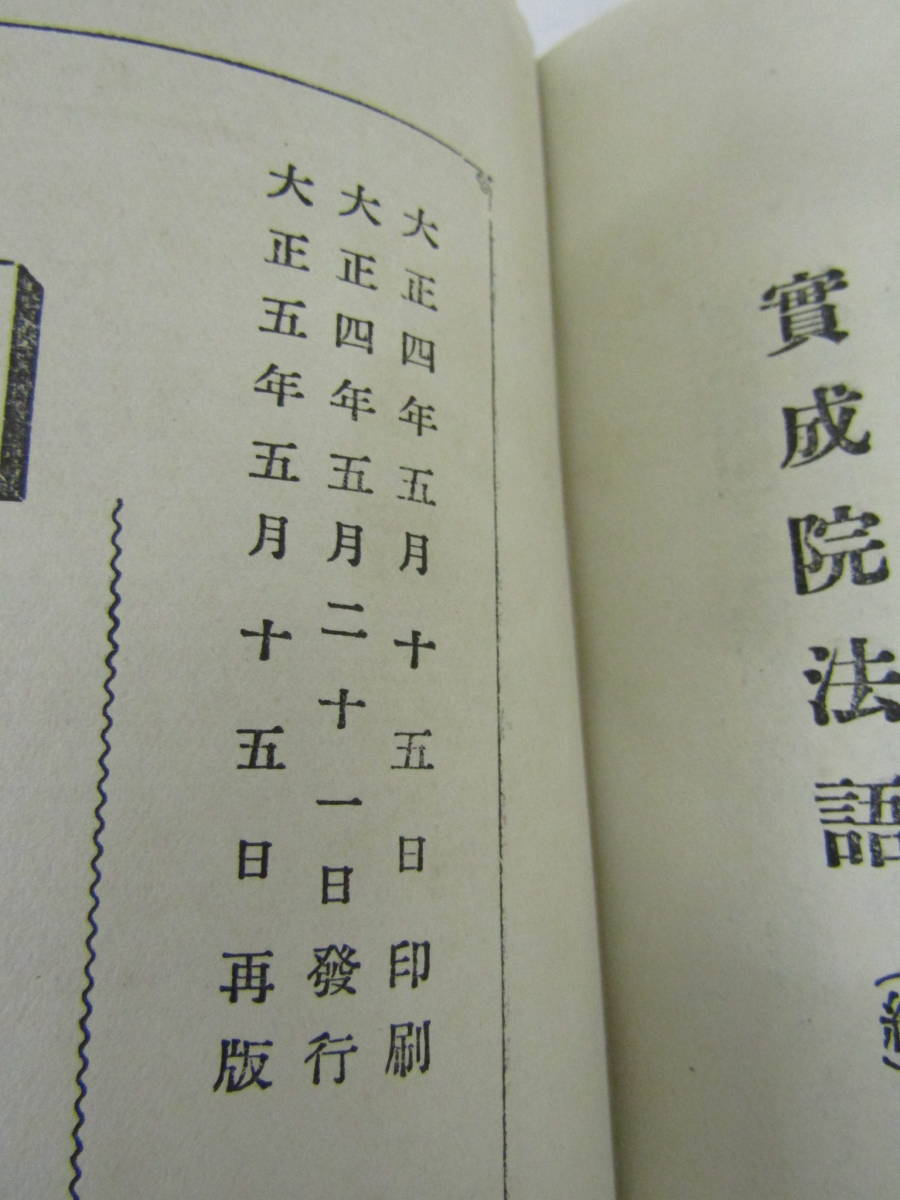 實成院法語
大正四年五月十五日印刷
大正四年五月二十一日發行
大正五年五月十五日再版